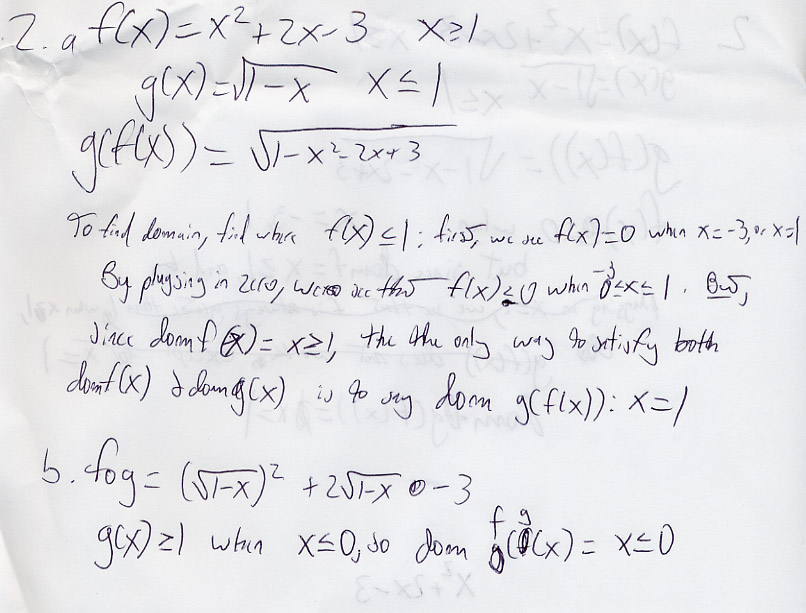 2. a f(x) = x² + 2x - 3   x ≥ 1
g(x) = √(1-x)   x ≤ 1
g(f(x)) = √(1-x²-2x+3)
To find domain, find where f(x) ≤ 1; first, we see f(x)=0 when x=-3, or x=1
By plugging in zero, we see that f(x) ≤ 0 when -3≤x≤1. But,
since domf(x) = x≥1, the the only way to satisfy both
domf(x) & domg(x) is to say dom g(f(x)): x=1
b. fog = (√(1-x))² + 2√(1-x) - 3
g(x) ≥ 1 when x≤0, so dom f(g(x) = x≤0